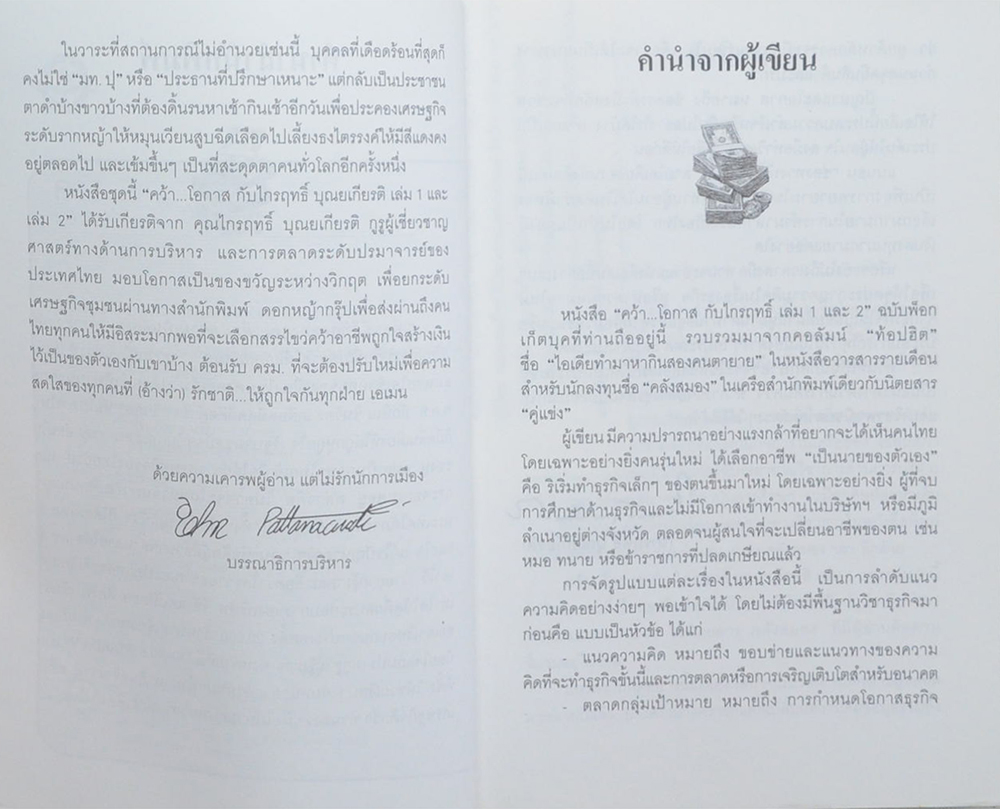 ในวาระที่สถานการณ์ไม่อำนวยเช่นนี้ บุคคลที่เดือดร้อนที่สุดก็
คงไม่ใช่ “มท. ปุ” หรือ “ประธานที่ปรึกษาเหนาะ” แต่กลับเป็นประชาชน
ตาดำบ้างขาวบ้างที่ต้องดิ้นรนหาเช้ากินเช้าอีกวันเพื่อประคองเศรษฐกิจ
ระดับรากหญ้าให้หมุนเวียนสูบฉีดเลือดไปเลี้ยงธงไตรรงค์ให้มีสีแดงคง
อยู่ตลอดไป และเข้มขึ้นๆ เป็นที่สะดุดตาคนทั่วโลกอีกครั้งหนึ่ง
หนังสือชุดนี้ “คว้า...โอกาส กับไกรฤทธิ์ บุณยเกียรติ เล่ม 1 และ
เล่ม 2” ได้รับเกียรติจาก คุณไกรฤทธิ์ บุณยเกียรติ กูรูผู้เชี่ยวชาญ
ศาสตร์ทางด้านการบริหาร และการตลาดระดับปรมาจารย์ของ
ประเทศไทย มอบโอกาสเป็นของขวัญระหว่างวิกฤต เพื่อยกระดับ
เศรษฐกิจชุมชนผ่านทางสำนักพิมพ์ ดอกหญ้ากรุ๊ปเพื่อส่งผ่านถึงคน
ไทยทุกคนให้มีอิสระมากพอที่จะเลือกสรรไขว่คว้าอาชีพถูกใจสร้างเงิน
ไว้เป็นของตัวเองกับเขาบ้าง ต้อนรับ ครม. ที่จะต้องปรับใหม่เพื่อความ
สดใสของทุกคนที่ (อ้างว่า) รักชาติ...ให้ถูกใจกันทุกฝ่าย เอเมน
ด้วยความเคารพผู้อ่าน แต่ไม่รักนักการเมือง
บรรณาธิการบริหาร
คำนำจากผู้เขียน
หนังสือ “คว้า...โอกาส กับไกรฤทธิ์ เล่ม 1 และ 2” ฉบับพ็อก
เก็ตบุคที่ท่านถืออยู่นี้ รวบรวมมาจากคอลัมน์ “ท้อปฮิต”
ชื่อ “ไอเดียทำมาหากินสองคนตายาย” ในหนังสือวารสารรายเดือน
สำหรับนักลงทุนชื่อ “คลังสมอง” ในเครือสำนักพิมพ์เดียวกับนิตยสาร
“คู่แข่ง”
ผู้เขียน มีความปรารถนาอย่างแรงกล้าที่อยากจะได้เห็นคนไทย
โดยเฉพาะอย่างยิ่งคนรุ่นใหม่ ได้เลือกอาชีพ “เป็นนายของตัวเอง”
คือ ริเริ่มทำธุรกิจเล็กๆ ของตนขึ้นมาใหม่ โดยเฉพาะอย่างยิ่ง ผู้ที่จบ
การศึกษาด้านธุรกิจและไม่มีโอกาสเข้าทำงานในบริษัทฯ หรือมีภูมิ
ลำเนาอยู่ต่างจังหวัด ตลอดจนผู้สนใจที่จะเปลี่ยนอาชีพของตน เช่น
หมอ ทนาย หรือข้าราชการที่ปลดเกษียณแล้ว
การจัดรูปแบบแต่ละเรื่องในหนังสือนี้ เป็นการลำดับแนว
ความคิดอย่างง่ายๆ พอเข้าใจได้ โดยไม่ต้องมีพื้นฐานวิชาธุรกิจมา
ก่อนคือ แบบเป็นหัวข้อ ได้แก่
- แนวความคิด หมายถึง ขอบข่ายและแนวทางของความ
คิดที่จะทำธุรกิจชั้นนี้และการตลาดหรือการเจริญเติบโตสำหรับอนาคต
- ตลาดกลุ่มเป้าหมาย หมายถึง การกำหนดโอกาสธุรกิจ